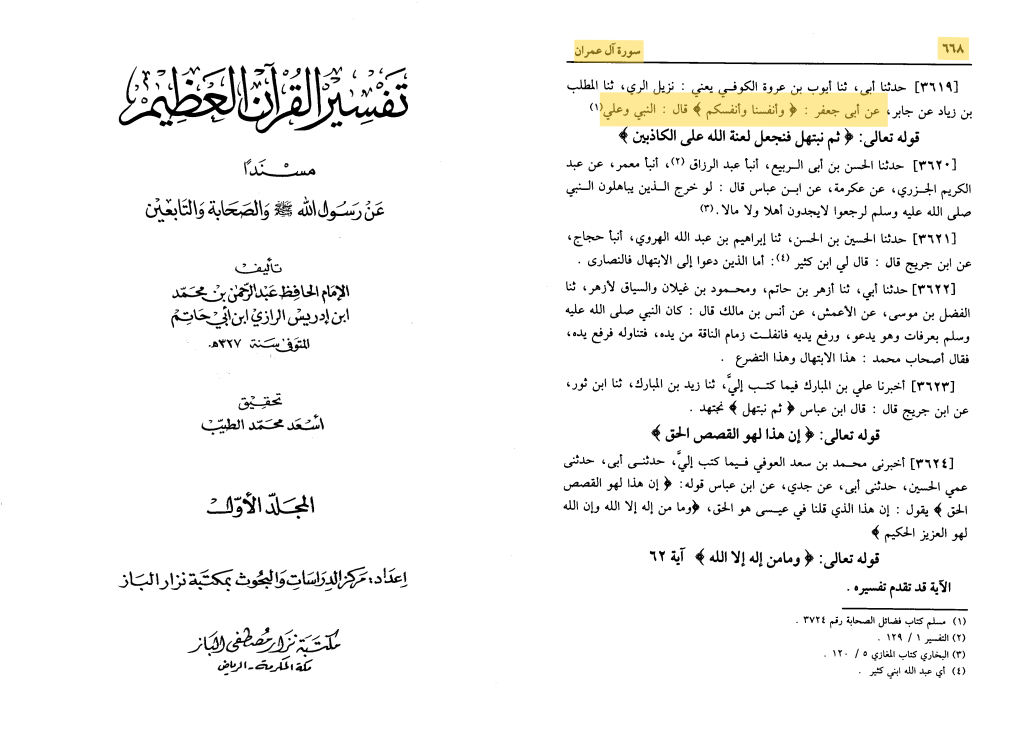 ٦٦٨
سورة آل عمران
[٣٦١٩] حدثنا أبى، ثنا أيوب بن عروة الكوفـي يعني : نزيل الري، ثنا المطلب
بن زياد عن جابر، عن أبى جعفر : ﴿ وأنفسنا وأنفسكم ﴾ قال : النبي وعلي(١)
قوله تعالى: ﴿ ثم نبتهل فنجعل لعنة الله على الكاذبين ﴾
[٣٦٢٠] حدثنا الحسن بن أبى الـربيع، أنبأ عبد الرزاق (٢)، أنبأ معمر، عن عبد
الكريم الجـزري، عن عكرمة، عن ابـن عباس قال : لو خرج الـذين يباهلون النـبي
صلى الله عليه وسلم لرجعوا لايجدون أهلا ولا مالا.(٣)
[٣٦٢١] حدثنا الحسين بن الحسن، ثنا إبراهيم بن عبد الله الهروي، أنبأ حجاج،
عن ابن جريج قال : قال لي ابن كثير (٤): أما الذين دعوا إلى الابتهال فالنصارى .
[٣٦٢٢] حدثنا أبي، ثنا أزهر بن حاتم، ومحمـود بن غيلان والسياق لأزهر، ثنا
الفضل بن موسى، عن الأعمش، عن أنس بن مالك قال : كان النبي صلى الله عليه
وسلم بعرفات وهو يدعو، ورفع يديه فانفلـت زمام الناقة من يده، فتناوله فرفع يده،
فقال أصحاب محمد : هذا الابتهال وهذا التضرع .
[٣٦٢٣] أخبرنا علي بن المبارك فيما كتـب إليَّ، ثنا زيد بن المبارك، ثنا ابن ثور،
عن ابن جريج قال : قال ابن عباس ﴿ ثم نبتهل ﴾ نجتهد .
قوله تعالى: ﴿ إن هذا لهو القصص الحق ﴾
[٣٦٢٤] أخبرنى محمـد بن سعد العوفي فـيما كتب إليَّ، حدثنـى أبى، حدثنى
عمي الحسين، حدثنى أبى، عن جدي، عن ابن عباس قوله: ﴿ إن هذا لهو القصص
الحق ﴾ يقول : إن هذا الذي قلنا في عيـسى هو الحق، ﴿وما من إله إلا الله وإن الله
لهو العزيز الحكيم ﴾
قوله تعالى: ﴿ ومامن إله إلا الله ﴾ آية ٦٢
الآية قد تقدم تفسيره .
(١) مسلم كتاب فضائل الصحابة رقم ٣٧٢٤ .
(٢) التفسير ١ / ١٢٩ .
(٣) البخاري كتاب المغازي ٥ / ١٢٠ .
(٤) أي عبد الله ابني كثير .
تَفسِير القُرآن العَظِيم
مسنَدًا
عَن رسُول الله ﷺ والصَحابة والتَابعين
تأليف
الإمام الحافظ عَبد الرَّحمٰن بن محَمّد
ابن إدريس الرازي ابن أبي حَاتِم
المتوفى سنة ٣٢٧هـ.
تحقيق
أسْعَد محَمّد الطيّب
المجَلّد الأوّل
إعداد: مركز الدراسَات والبحُوث بمكتبَة نزار الباز
مكتبَة نزار مصْطفى الباز
مكة المكرمة - الرياض